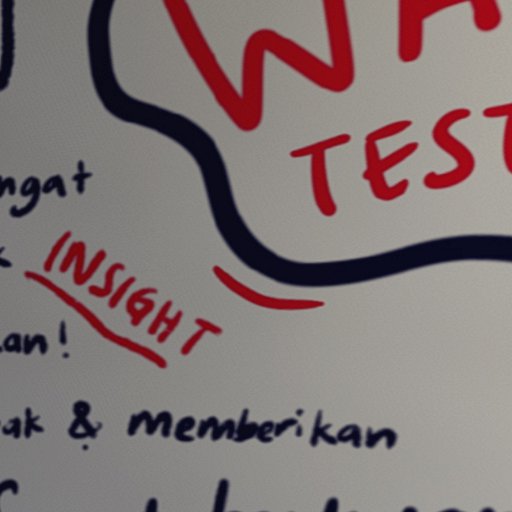 WA
TEST
ngat
k INSIGHT
kan!
ak & memberikan